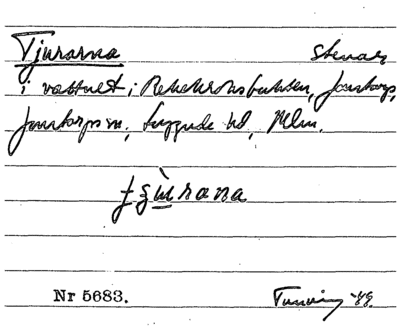 Tjurarna stenar
i vattnet i Rekekroksbukten, Jonstorp,
Jonstorps sn, Luggude hd, Mlm.
Nr 5683.